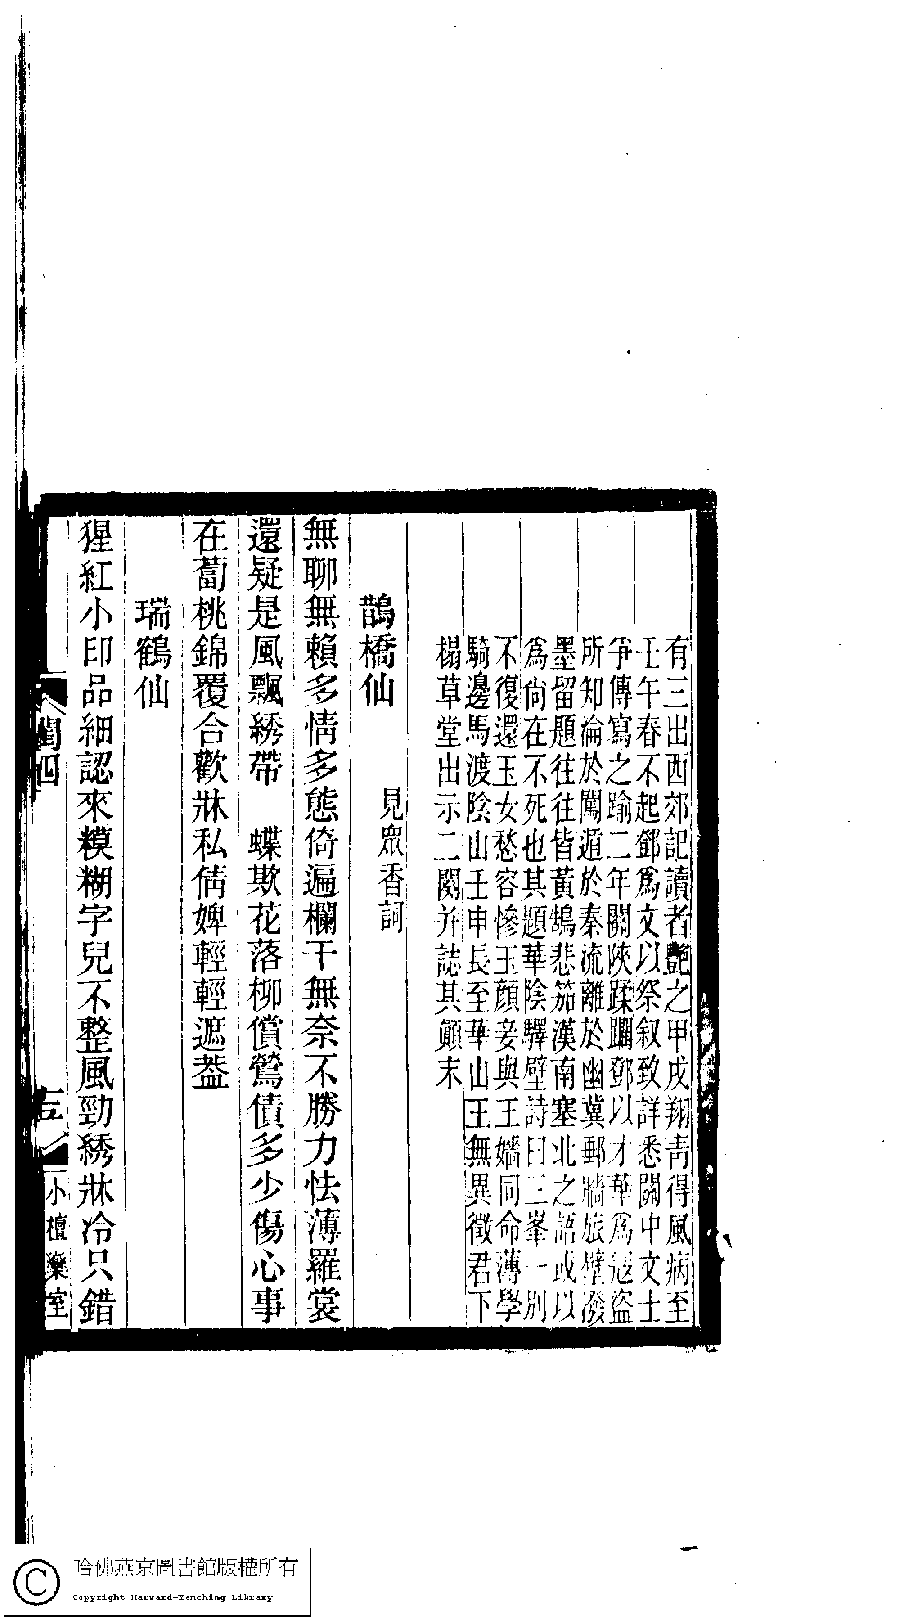 有三出西郊記讀者艷之甲戌翔青得風病至
壬午春不起鄧為文以祭叙致詳悉關中文士
爭傳寫之踰二年關陝蹂躪鄧以才華為寇盜
所知淪於闖遁於秦流離於幽冀郵牆旅壁潑
墨留題往往皆黃鵠悲笳漢南塞北之語或以
為尙在不死也其題華陰驛壁詩曰三峯一別
不復還玉女愁容慘玉顏妾與王嬙同命薄學
騎邊馬渡陰山壬申長至華山王無異徵君下
榻草堂出示二闋并誌其顚末
鵲橋仙 見眾香詞
無聊無賴多情多態倚遍欄干無奈不勝力怯薄羅裳
還疑是風飄綉帶 蝶欺花落柳償鶯債多少傷心事
在蔔桃錦覆合歡牀私倩婢輕輕遮葢
瑞鶴仙
猩紅小印品細認來模糊字兒不整風勁綉牀冷只錯
閏四
三
小檀欒室
哈佛燕京圖書館版權所有
Copyright Harvard-Yenching Library